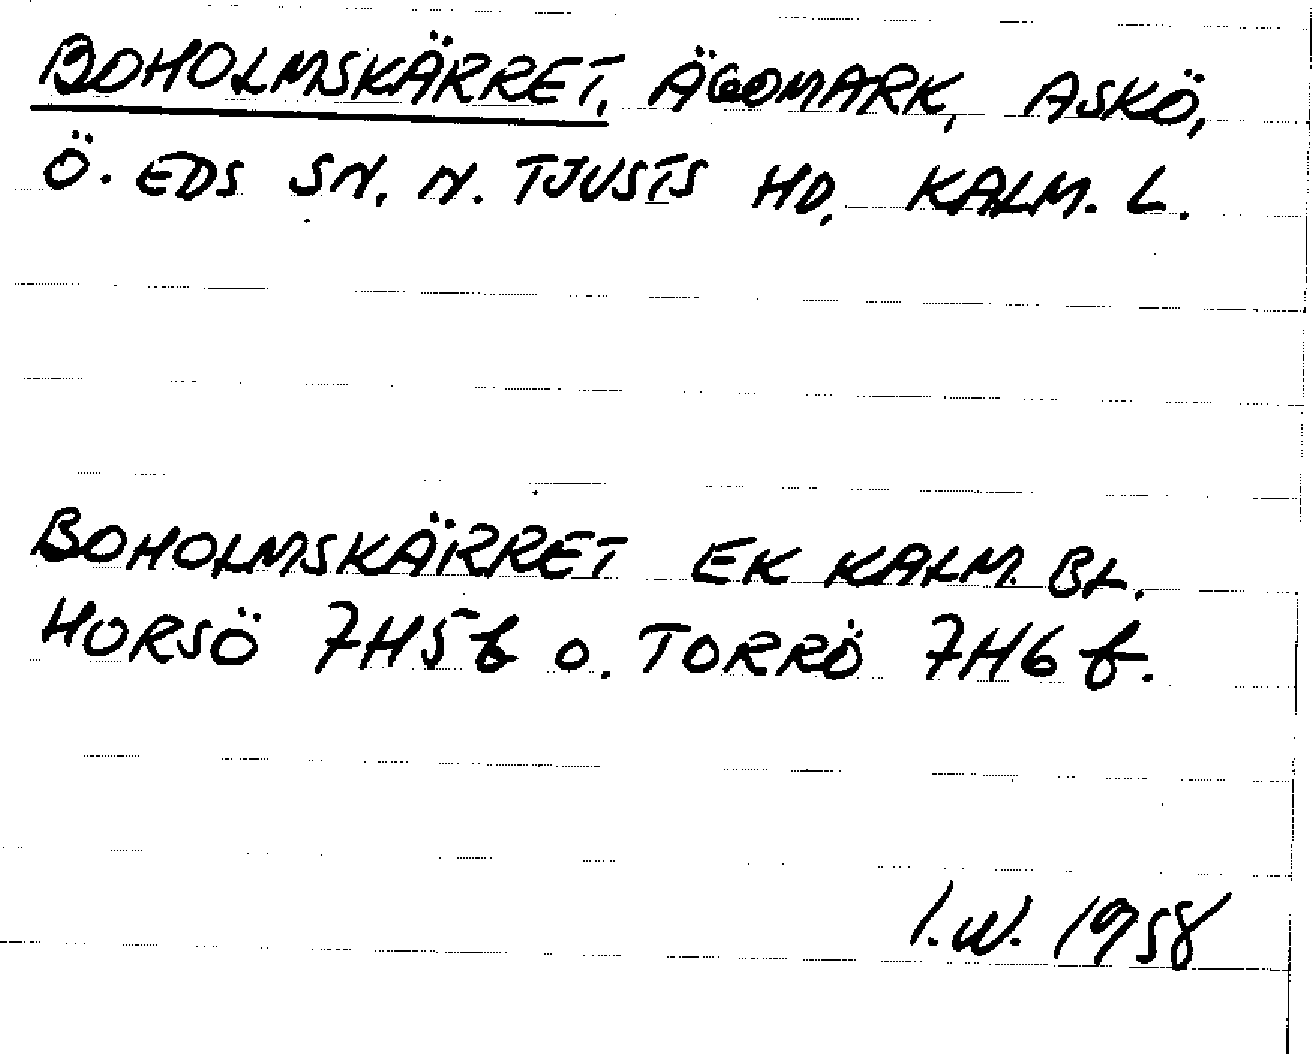 BOHOLMSKÄRRET, ÄGOMARK, ASKÖ,
Ö. EDS SN, N. TJUSTS HD, KALM. L.
BOHOLMSKÄRRET EK KALM. BL.
HORSÖ 7H5f o. TORRÖ 7H6f.
I.W. 1958